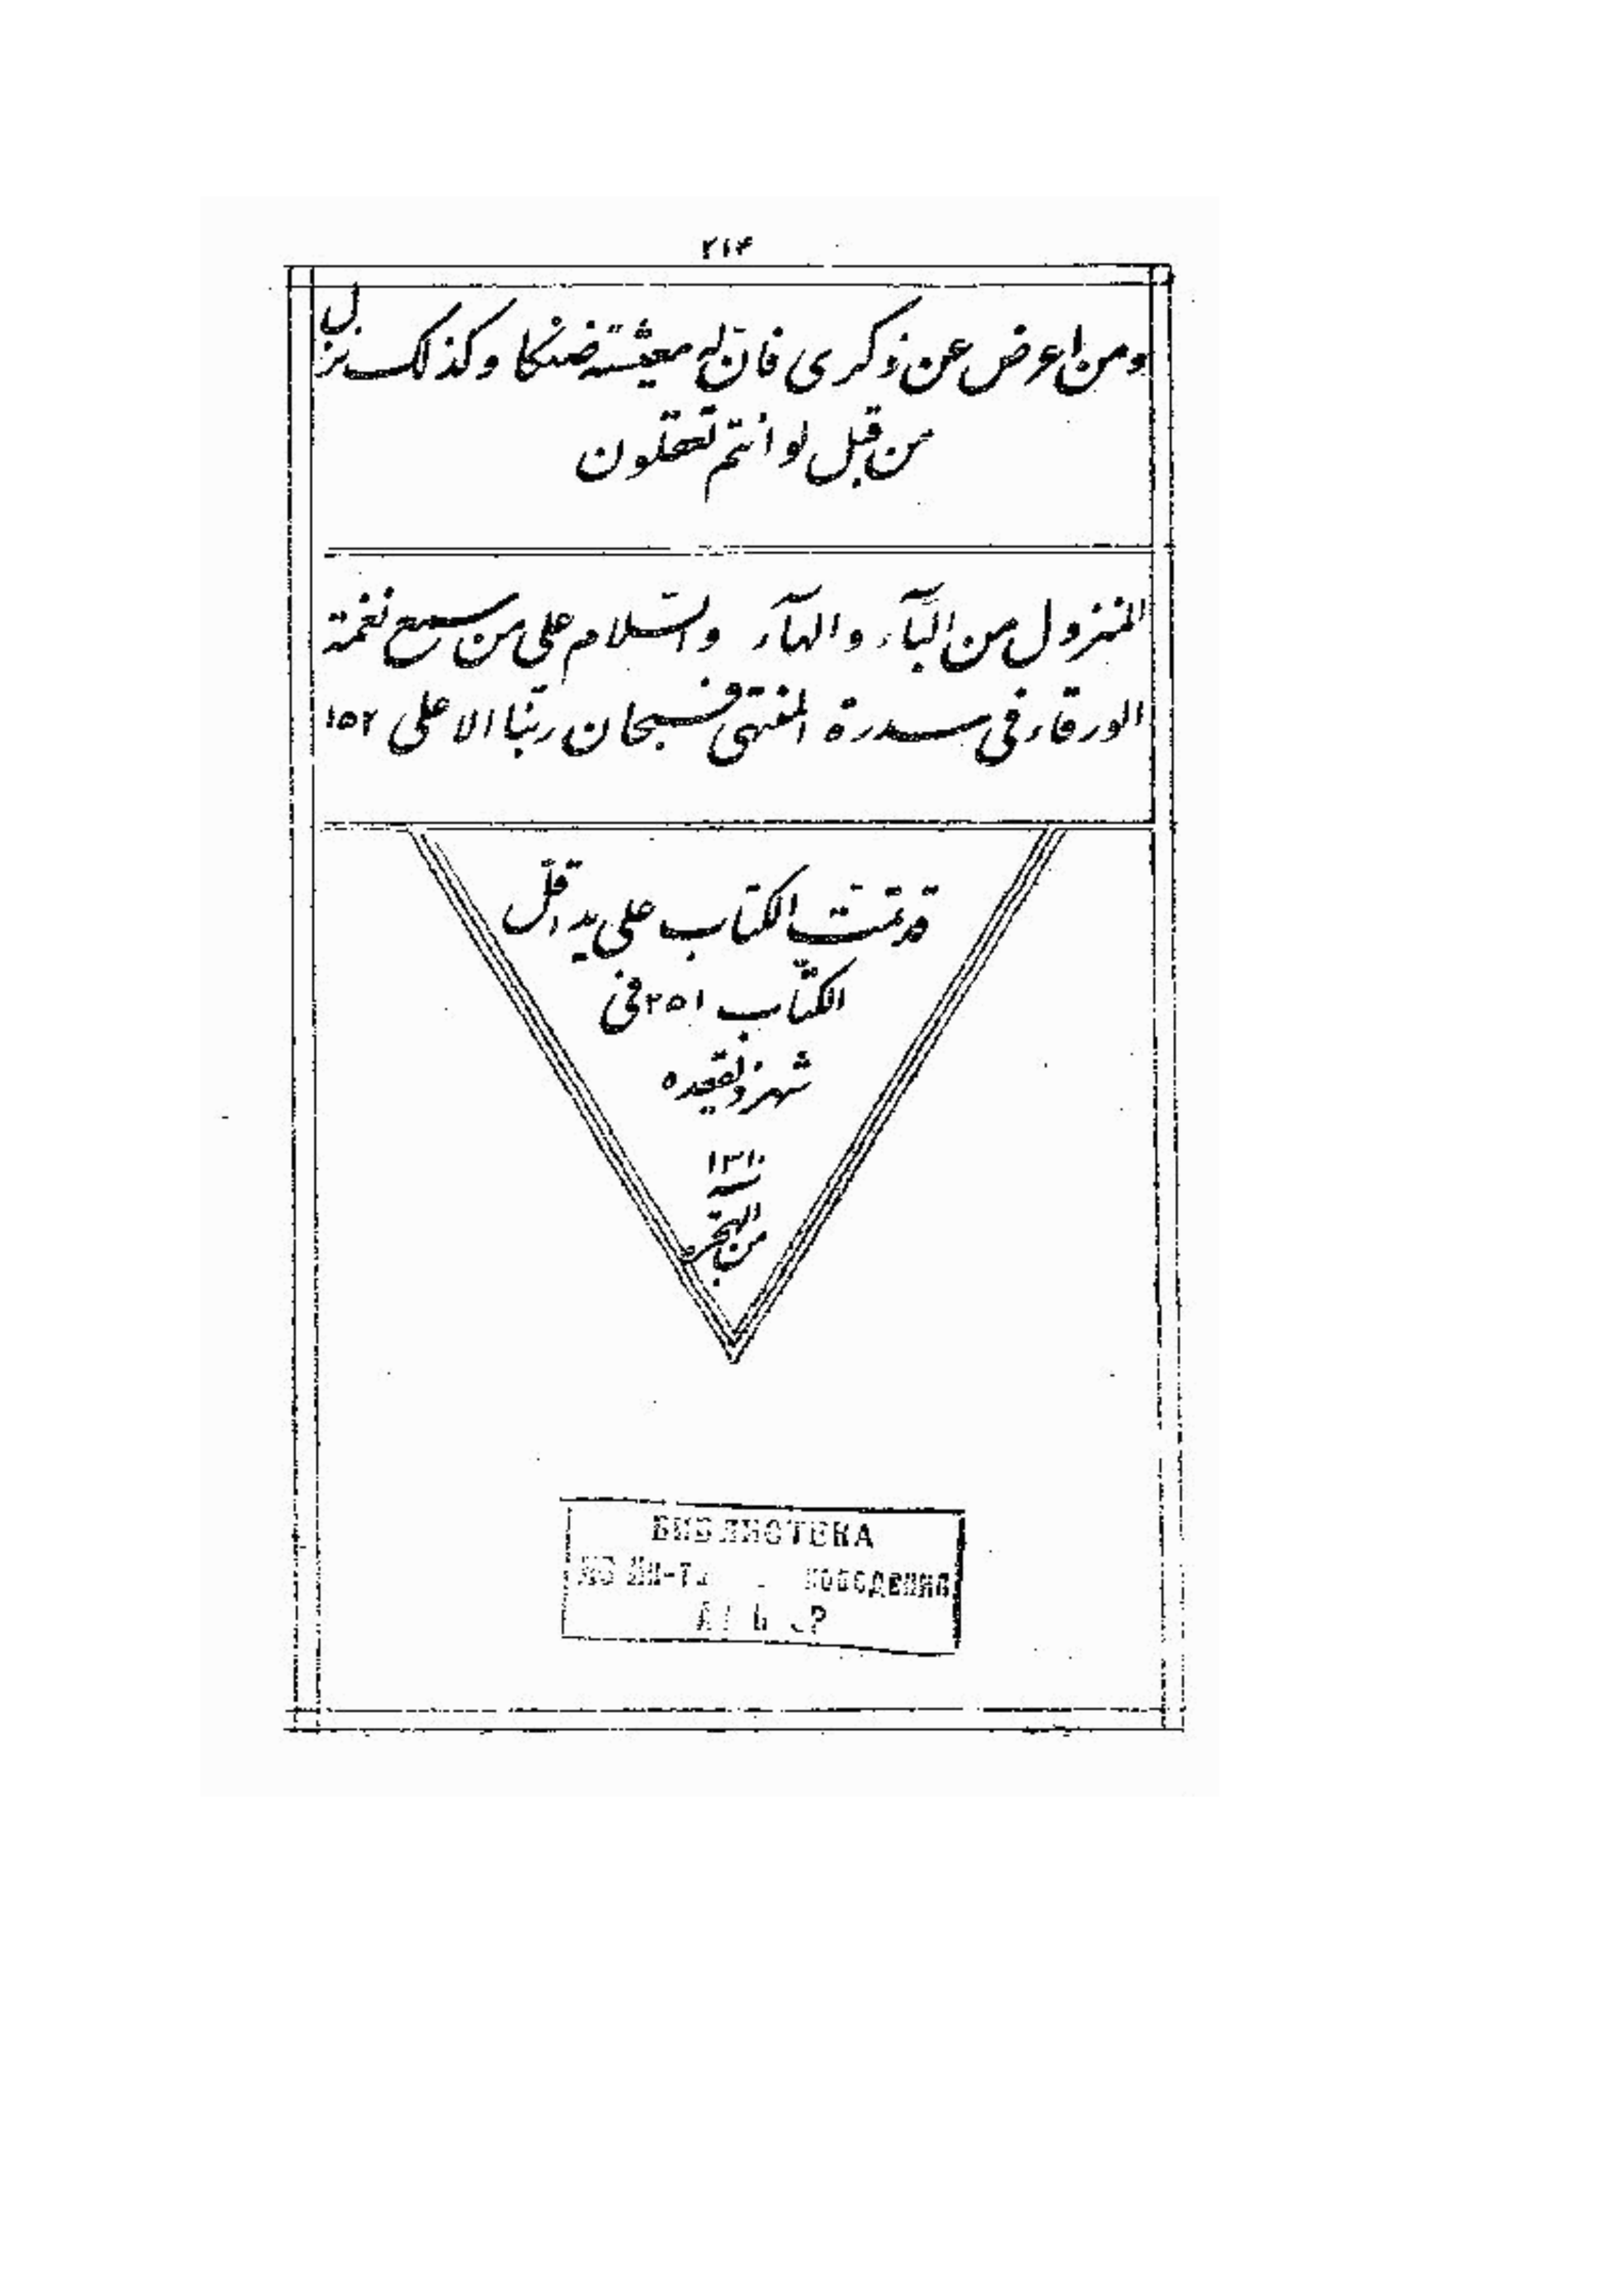 ۲۱۴
ومن اعرض عن ذكرى فان له معيشة ضنكا وكذلك نزل
من قبل لو انتم تعقلون
المنزول من البآء والهآء والسّلام على من سمع نغمة
الورقاء فى سدرة المنتهى فسبحان ربّنا الاعلى ۱۵۲
قد تمّت الكتاب على يد اقلّ
الكتّاب ۲۵۱ فى
شهر ذيقعده
۱۳۱۰
من الهجرة
БИБЛИОТЕКА